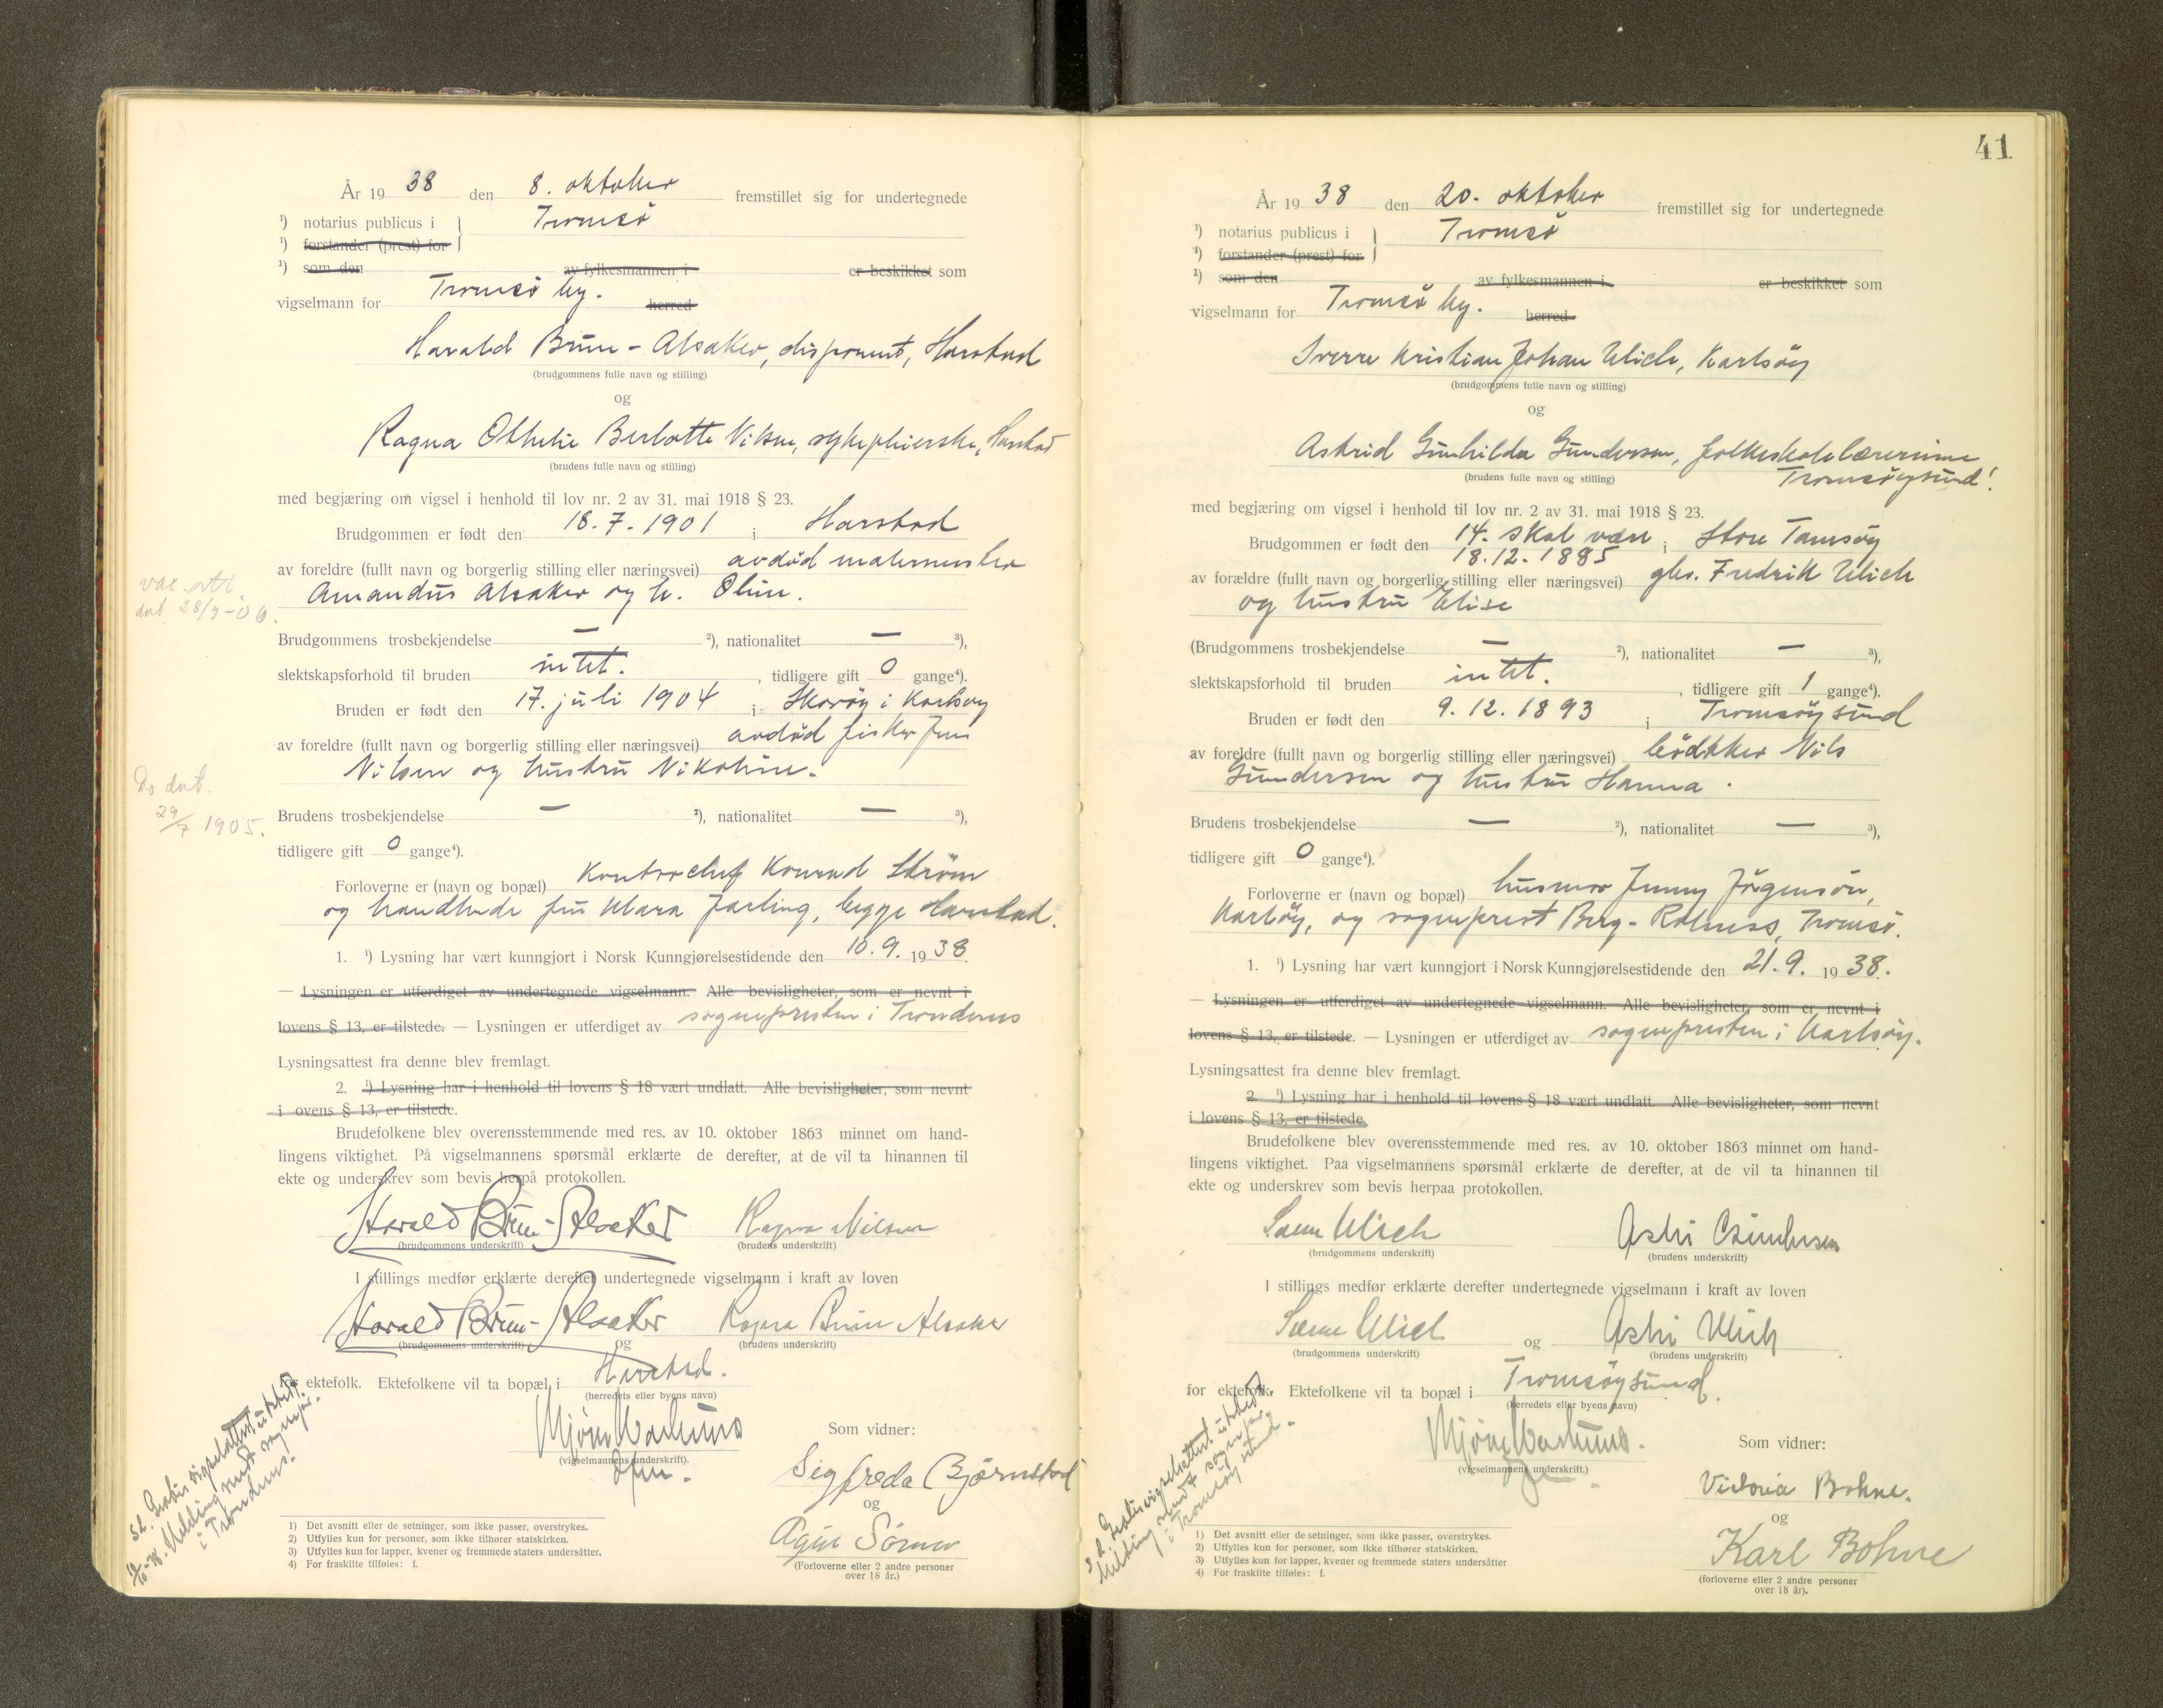 År 19 38 den 8. oktober fremstillet sig for undertegnede
¹) notarius publicus i } Tromsö
¹) forstander (prest) for
¹) som den av fylkesmannen i er beskikket som
vigselmann for Tromsö by. herred
Harald Bruu-Alsaker, disponent, Harstad
(brudgommens fulle navn og stilling)
og
Ragna Othelie Berlotte Nilsen, sykepleierske, Harstad
(brudens fulle navn og stilling)
med begjæring om vigsel i henhold til lov nr. 2 av 31. mai 1918 § 23.
Brudgommen er født den 18.7.1901 i Harstad
av foreldre (fullt navn og borgerlig stilling eller næringsvei) avdöd malermester
Amandus Alsaker og h. Oline.
vac. att.
dat 28/9-06.
Brudgommens trosbekjendelse — ²), nationalitet — ³),
slektskapsforhold til bruden intet. , tidligere gift 0 gange⁴).
Bruden er født den 17. juli 1904 i Skoröy i Karlsöy
av foreldre (fullt navn og borgerlig stilling eller næringsvei) avdöd fisker Jens
Nilsen og hustru Nikoline.
Do dat.
29/7 1905.
Brudens trosbekjendelse — ²), nationalitet — ³),
tidligere gift 0 gange⁴).
Forloverne er (navn og bopæl) kontorchef Konrad Ström
og handlende fru Klara Jarling, begge Harstad.
1. ¹) Lysning har vært kunngjort i Norsk Kunngjørelsestidende den 10.9. 19 38.
— Lysningen er utferdiget av undertegnede vigselmann. Alle bevisligheter, som er nevnt i
lovens § 13, er tilstede. — Lysningen er utferdiget av sognepresten i Trondenes
Lysningsattest fra denne blev fremlagt.
2. ¹) Lysning har i henhold til lovens § 18 vært undlatt. Alle bevisligheter, som nevnt
i ovens § 13, er tilstede.
Brudefolkene blev overensstemmende med res. av 10. oktober 1863 minnet om hand-
lingens viktighet. På vigselmannens spørsmål erklærte de derefter, at de vil ta hinannen til
ekte og underskrev som bevis herpå protokollen.
Harald Bruu-Alsaker Ragna Nilsen
(brudgommens underskrift) (brudens underskrift)
I stillings medfør erklærte derefter undertegnede vigselmann i kraft av loven
Harald Bruu-Alsaker Ragna Bruu Alsaker
(brudgommens underskrift) og (brudens underskrift)
for ektefolk. Ektefolkene vil ta bopæl i Harstad.
(herredets eller byens navn)
Som vidner:
(vigselmannens underskrift).
Sigfreda Björnstad
og
(Forloverne eller 2 andre personer
over 18 år.)
Sd. Gratis vigselattest utstedt.
Melding sendt sognepr.
i Trondenes.
1) Det avsnitt eller de setninger, som ikke passer, overstrykes.
2) Utfylles kun for personer, som ikke tilhører statskirken.
3) Utfylles kun for lapper, kvener og fremmede staters undersåtter.
4) For fraskilte tilføies: f.
41
År 19 38 den 20. oktober fremstillet sig for undertegnede
¹) notarius publicus i } Tromsö
¹) forstander (prest) for
¹) som den av fylkesmannen i er beskikket som
vigselmann for Tromsö by. herred
Sverre Kristian Johan Ulich, Karlsöy
(brudgommens fulle navn og stilling)
og
Astrid Gunhilda Gundersen, folkeskolelærerinne
Tromsöysund.
(brudens fulle navn og stilling)
med begjæring om vigsel i henhold til lov nr. 2 av 31. mai 1918 § 23.
14. skal være
Brudgommen er født den 18.12.1885 i Store Tamsöy
av forældre (fullt navn og borgerlig stilling eller næringsvei) gbr. Fredrik Ulich
og hustru Elise
(Brudgommens trosbekjendelse — ²), nationalitet — ³),
slektskapsforhold til bruden intet. , tidligere gift 1 gange⁴).
Bruden er født den 9.12.1893 i Tromsöysund
av foreldre (fullt navn og borgerlig stilling eller næringsvei) bödkker Nils
Gundersen og hustru Hanna.
Brudens trosbekjendelse — ²), nationalitet — ³),
tidligere gift 0 gange⁴).
Forloverne er (navn og bopæl) husmor Jenny Jörgensen,
Karlsöy, og sogneprest Berg-Rolness, Tromsö.
1. ¹) Lysning har vært kunngjort i Norsk Kunngjørelsestidende den 21.9. 19 38.
— Lysningen er utferdiget av undertegnede vigselmann. Alle bevisligheter, som er nevnt i
lovens § 13, er tilstede. — Lysningen er utferdiget av sognepresten i Karlsöy.
Lysningsattest fra denne blev fremlagt.
2. ¹) Lysning har i henhold til lovens § 18 vært undlatt. Alle bevisligheter, som nevnt
i lovens § 13, er tilstede.
Brudefolkene blev overensstemmende med res. av 10. oktober 1863 minnet om hand-
lingens viktighet. Paa vigselmannens spørsmål erklærte de derefter, at de vil ta hinannen til
ekte og underskrev som bevis herpaa protokollen.
Sverre Ulich Astri Gundersen
(brudgommens underskrift) (brudens underskrift)
I stillings medfør erklærte derefter undertegnede vigselmann i kraft av loven
Sverre Ulich og Astri Ulich
(brudgommens underskrift) (brudens underskrift)
for ektefolk. Ektefolkene vil ta bopæl i Tromsöysund.
(herredets eller byens navn)
Som vidner:
(vigselmannens underskrift.)
Victoria Bohne.
og
Karl Bohne
(forloverne eller 2 andre personer
over 18 år).
S.d. Gratis vigselattest utstedt.
Melding sendt sognepr.
i Tromsöysund.
1) Det avsnitt eller de setninger, som ikke passer, overstrykes.
2) Utfylles kun for personer, som ikke tilhører statskirken.
3) Utfylles kun for lapper, kvener og fremmede staters undersåtter
4) For fraskilte tilføies: f.